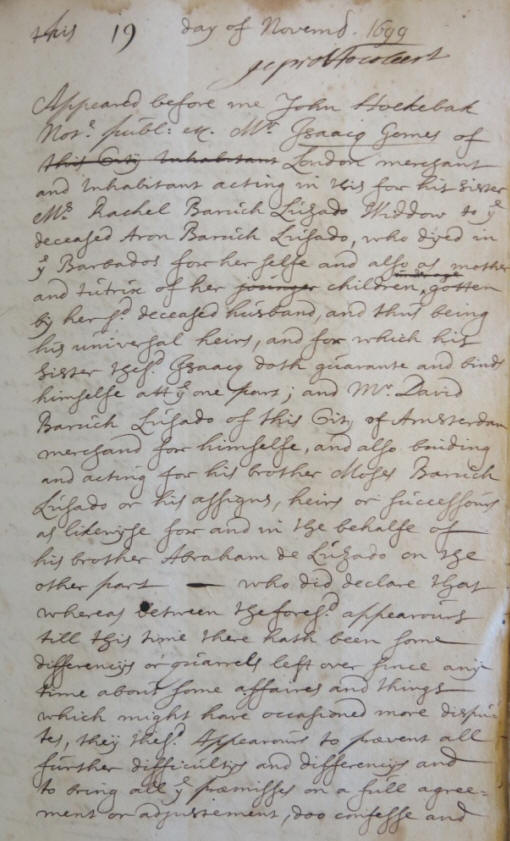 this 19 day of Novemb. 1699
Appeared before me John Hoekebak
Nots. publ: &c. Mr. Isaacq Gomes of
this City Inhabitant London merchant
and Inhabitant acting in this for his sister
Ms. Rachel Baruch Lusado Widdow to ye
deceased Aron Baruch Lusado, who dyed in
ye Barbados for her selfe and also as mother
and tutrix of her younger children, gotten
by her sd. deceased husband, and thus being
his universal heirs, and for which his
sister the sd. Isaacq doth guarante and binds
himselfe att ye one part; and Mr. David
Baruch Lusado of this City of Amsterdam
merchand for himselfe, and also binding
and acting for his brother Moses Baruch
Lusado or his assigns, heirs or successours
as likewise for and in the behalfe of
his brother Abraham de Lusado on the
other part — who did declare that
whereas between the foresd. appearours
till this time there hath been some
differencys or quarrels left over since any
time about some affaires and things
which might have occasioned more dispu
tes, they the sd. Appearours to prævent all
further difficultys and differencys and
to bring all ye præmisses on a full agree-
ment or adjustement, doo confesse and